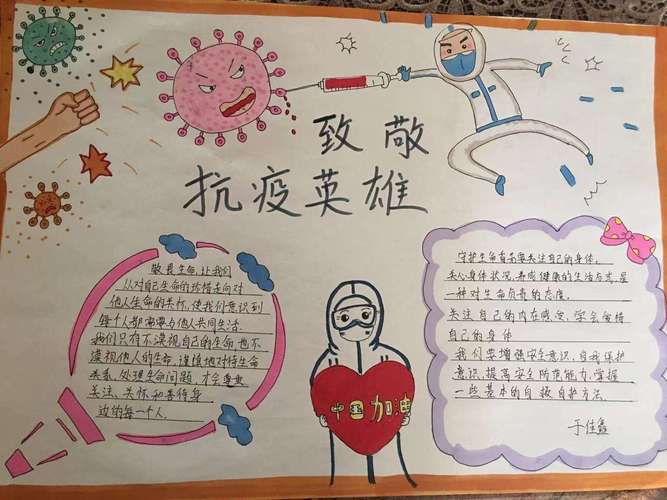 致敬
抗疫英雄
敬畏生命,让我们
从对自己生命的珍惜走向对
他人生命的关怀,使我们意识到
每个人都需要与他人共同生活.
我们只有不漠视自己的生命,也不
漠视他人的生命,谨慎地对待生命
关系,处理生命问题,才会
关注、关怀和善待身
边的每一个人.
中国加油
守护生命首先要关注自己的身体.
关心身体状况,养成健康的生活方式,是
一种对生命负责的态度.
关注自己的内在感受,学会爱惜
自己的身体
我们要增强安全意识,自我保护
意识,提高安全防范能力,掌握
一些基本的自救自护方法.
于佳鑫